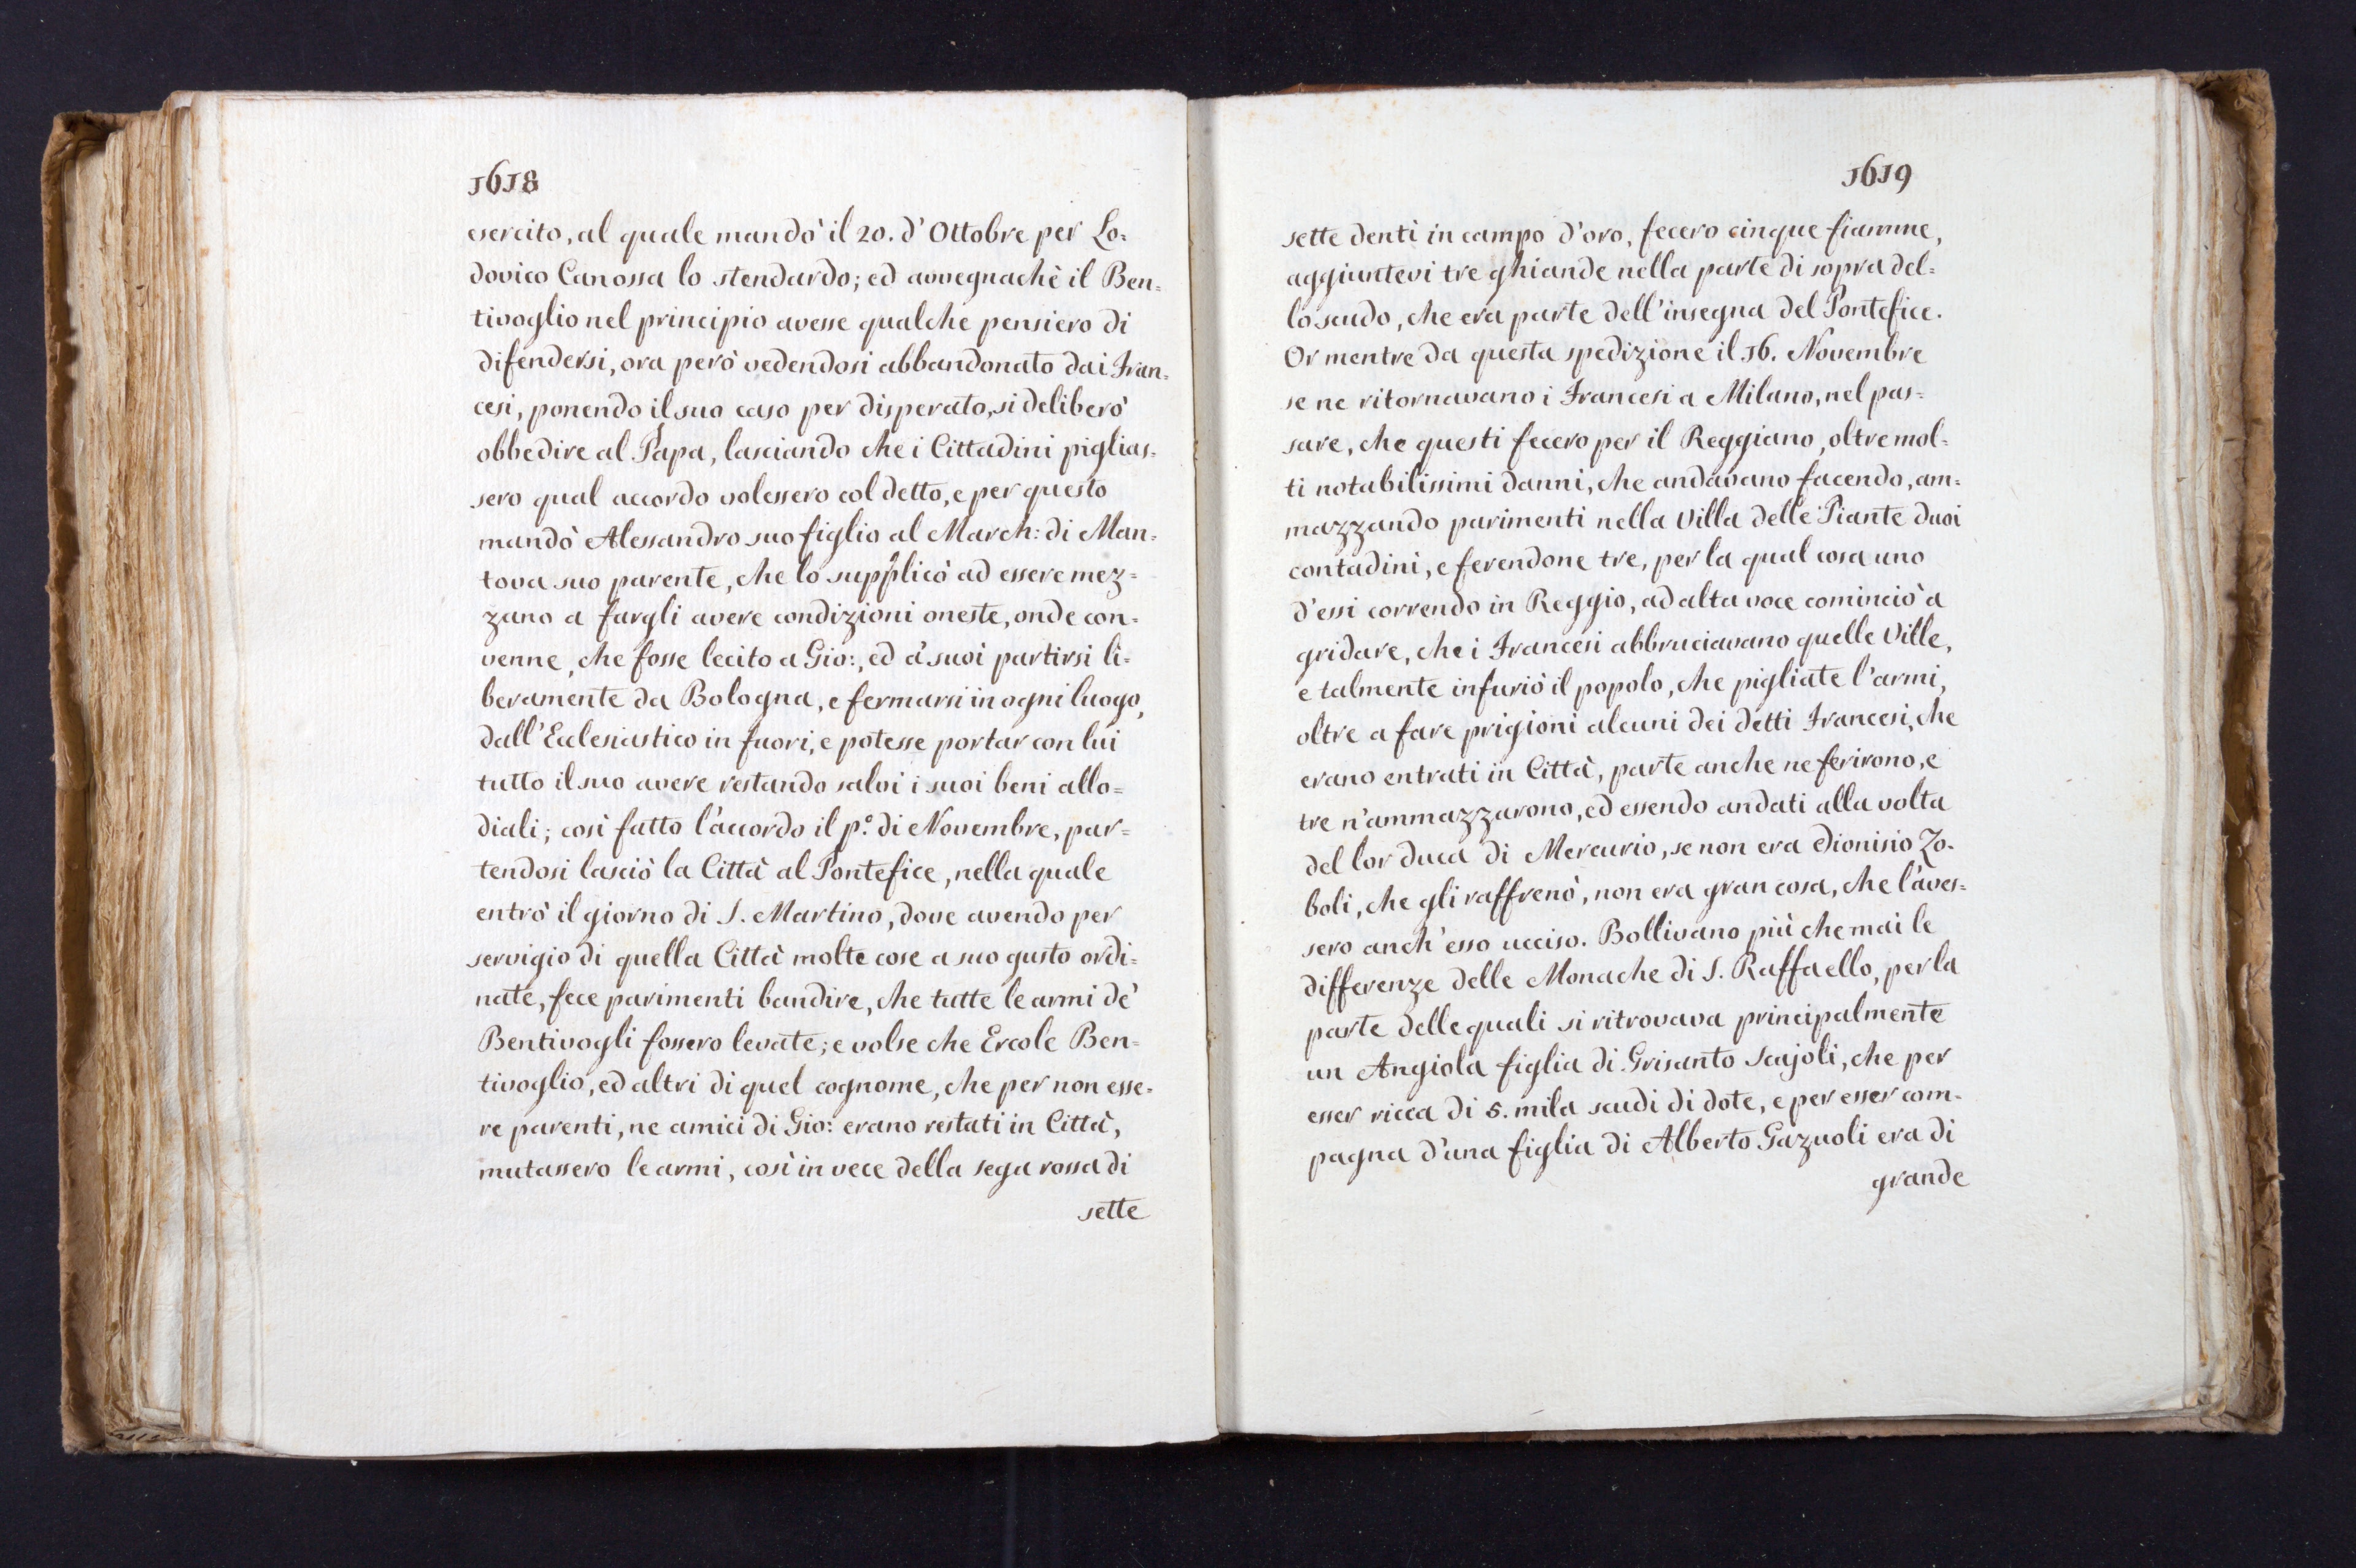 1618
esercito, al quale mandò il 20. d'Ottobre per Lo=
dovico Canossa lo stendardo; ed avvegnachè il Ben=
tivoglio nel principio avesse qualche pensiero di
difendersi, ora però vedendosi abbandonato dai Fran=
cesi, ponendo il suo caso per disperato, si deliberò
obbedire al Papa, lasciando che i Cittadini piglias=
sero qual accordo volessero col detto, e per questo
mandò Alessandro suo figlio al March: di Man=
tova suo parente, che lo supplicò ad essere mez=
zano a fargli avere condizioni oneste, onde con=
venne, che fosse lecito a Gio:, ed a' suoi partirsi li=
beramente da Bologna, e fermarsi in ogni luogo,
dall'Eclesiastico in fuori, e potesse portar con lui
tutto il suo avere restando salvi i suoi beni allo=
diali; così fatto l'accordo il p.º di Novembre, par=
tendosi lasciò la Città al Pontefice, nella quale
entrò il giorno di S. Martino, dove avendo per
servigio di quella Città molte cose a suo gusto ordi=
nate, fece parimenti bandire, che tutte le armi de'
Bentivogli fossero levate; e volse che Ercole Ben=
tivoglio, ed altri di quel cognome, che per non esse=
re parenti, ne amici di Gio: erano restati in Città,
mutassero le armi, così in vece della sega rossa di
sette
1619
sette denti in campo d'oro, fecero cinque fiamme,
aggiuntevi tre ghiande nella parte di sopra del=
lo scudo, che era parte dell'insegna del Pontefice.
Or mentre da questa spedizione il 16. Novembre
se ne ritornavano i Francesi a Milano, nel pas=
sare, che questi fecero per il Reggiano, oltre mol=
ti notabilissimi danni, che andavano facendo, am=
mazzando parimenti nella Villa delle Piante duoi
contadini, e ferendone tre, per la qual cosa uno
d'essi correndo in Reggio, ad alta voce cominciò a
gridare, che i Francesi abbruciavano quelle Ville,
e talmente infuriò il popolo, che pigliate l'armi,
oltre a fare prigioni alcuni dei detti Francesi, che
erano entrati in Città, parte anche ne ferirono, e
tre n'ammazzarono, ed essendo andati alla volta
del lor duca di Mercurio, se non era Dionisio Zo=
boli, che gli raffrenò, non era gran cosa, che l'aves=
sero anch'esso ucciso. Bollivano più che mai le
differenze delle Monache di S. Raffaello, per la
parte delle quali si ritrovava principalmente
un Angiola figlia di Grisanto Scajoli, che per
esser ricca di 5. mila scudi di dote, e per esser com=
pagna d'una figlia di Alberto Gazuoli era di
grande